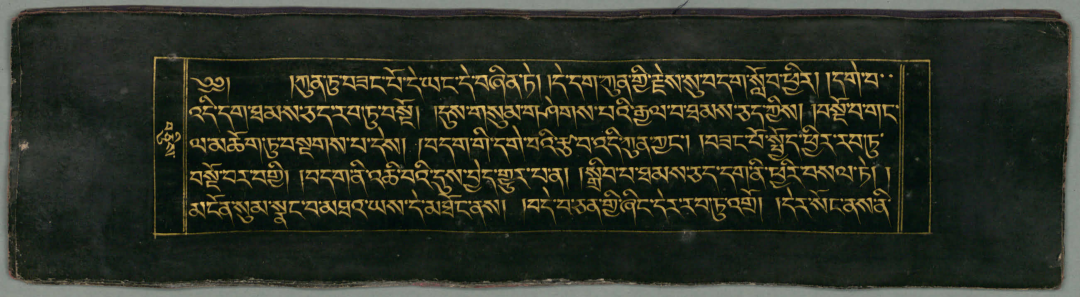 ༄༅། །ཀུན་ཏུ་བཟང་པོ་དེ་ཡང་དེ་བཞིན་ཏེ། །དེ་དག་ཀུན་གྱི་རྗེས་སུ་བདག་སློབ་ཕྱིར། །དགེ་བ་
འདི་དག་ཐམས་ཅད་རབ་ཏུ་བསྔོ། །དུས་གསུམ་གཤེགས་པའི་རྒྱལ་བ་ཐམས་ཅད་ཀྱིས། །བསྔོ་བ་གང་
ལ་མཆོག་ཏུ་བསྔགས་པ་དེས། །བདག་གི་དགེ་བའི་རྩ་བ་འདི་ཀུན་ཀྱང་། །བཟང་པོ་སྤྱོད་ཕྱིར་རབ་ཏུ་
བསྔོ་བར་བགྱི། །བདག་ནི་འཆི་བའི་དུས་བྱེད་གྱུར་པ་ན། །སྒྲིབ་པ་ཐམས་ཅད་དག་ནི་ཕྱིར་བསལ་ཏེ། །
མངོན་སུམ་སྣང་བ་མཐའ་ཡས་དེ་མཐོང་ནས། །བདེ་བ་ཅན་གྱི་ཞིང་དེར་རབ་ཏུ་འགྲོ། །དེར་སོང་ནས་ནི་